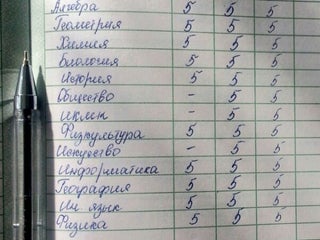 Алгебра 5 5 5
Геометрия 5 5 5
Химия 5 5 5
Биология 5 5 5
История 5 5 5
Общество - 5 5
ИКЛКН - 5 5
Физкультура 5 5 5
Искусство - 5 5
Информатика 5 5 5
География 5 5 5
Ин язык 5 5 5
Физика 5 5 5